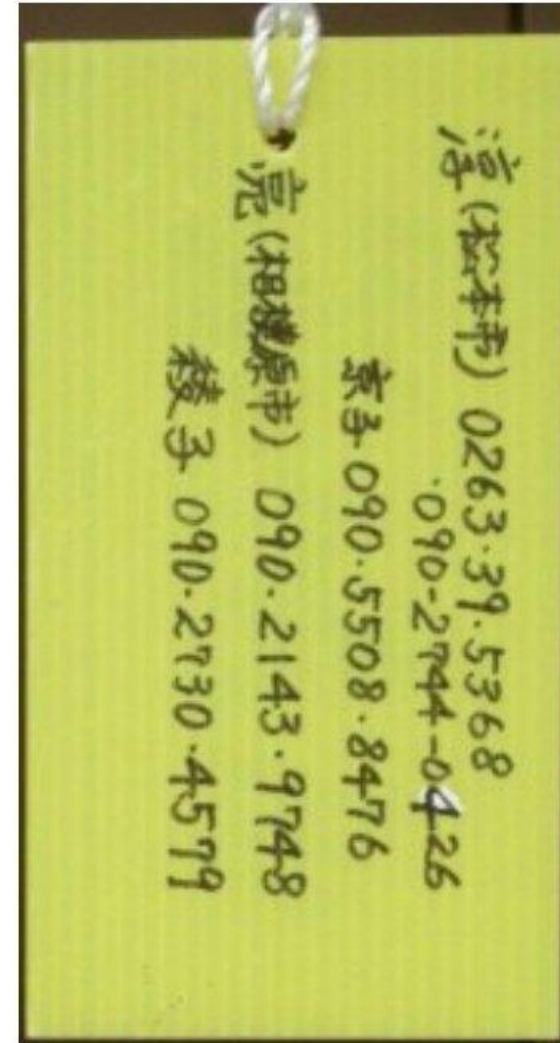 淳(松本市) 0263・39・5368
・090-2744-0426
京子 090・5508・8476
亮(相模原市) 090・2143・9748
綾子 090・2730・4579